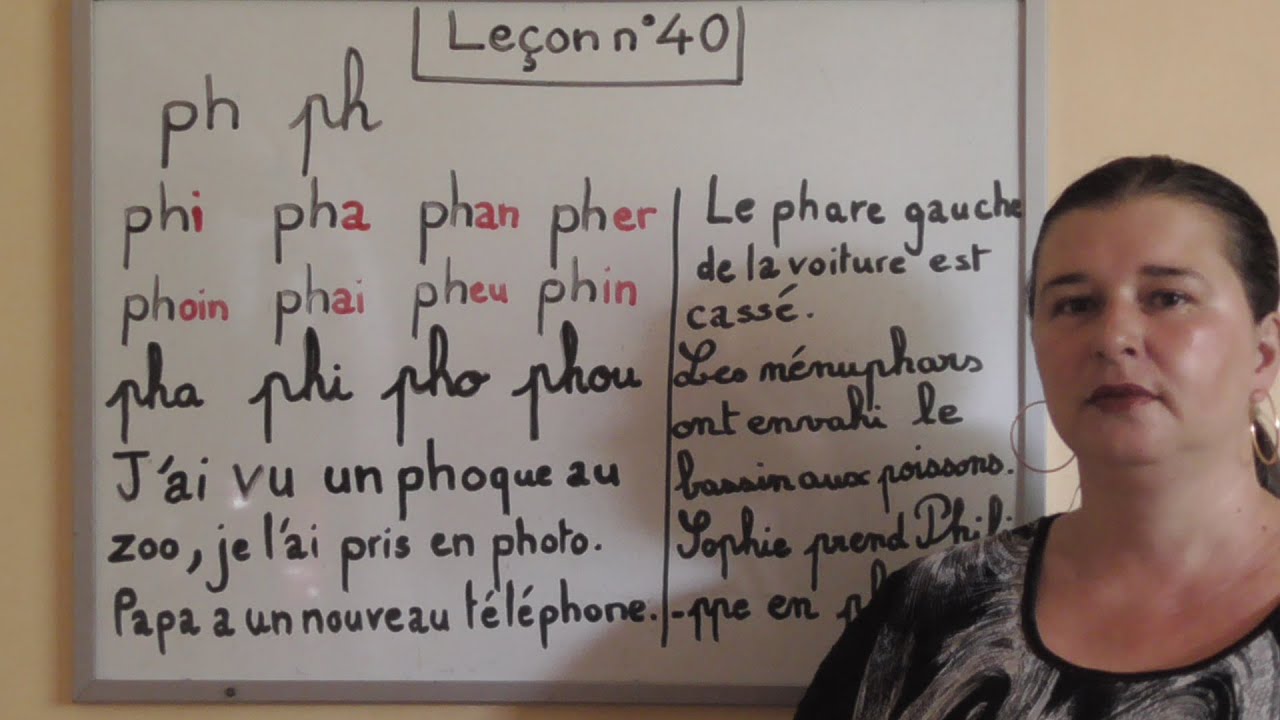 Leçon n°40
ph ph
phi pha phan pher
phoin phai pheu phin
pha phi pho phou
J'ai vu un phoque au
zoo, je l'ai pris en photo.
Papa a un nouveau téléphone.
Le phare gauche
de la voiture est
cassé.
Les ménuphars
ont envahi le
bassin aux poissons.
Sophie prend Phili
-ppe en